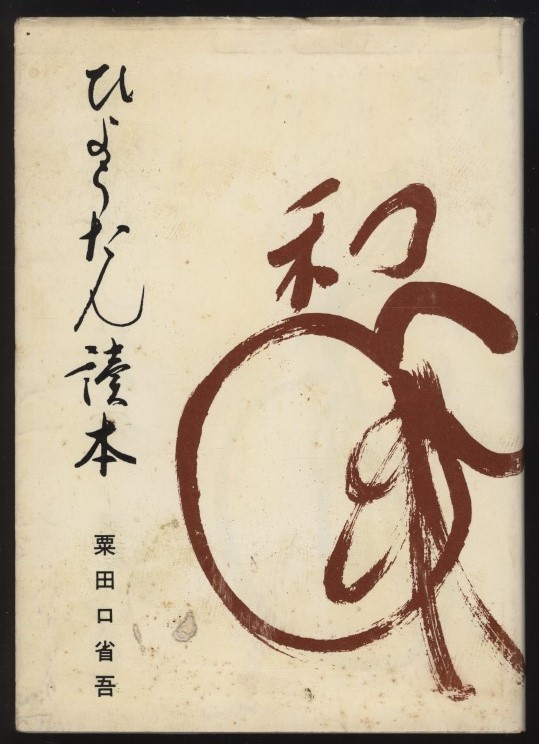 ひようたん讀本
粟田口省吾
和